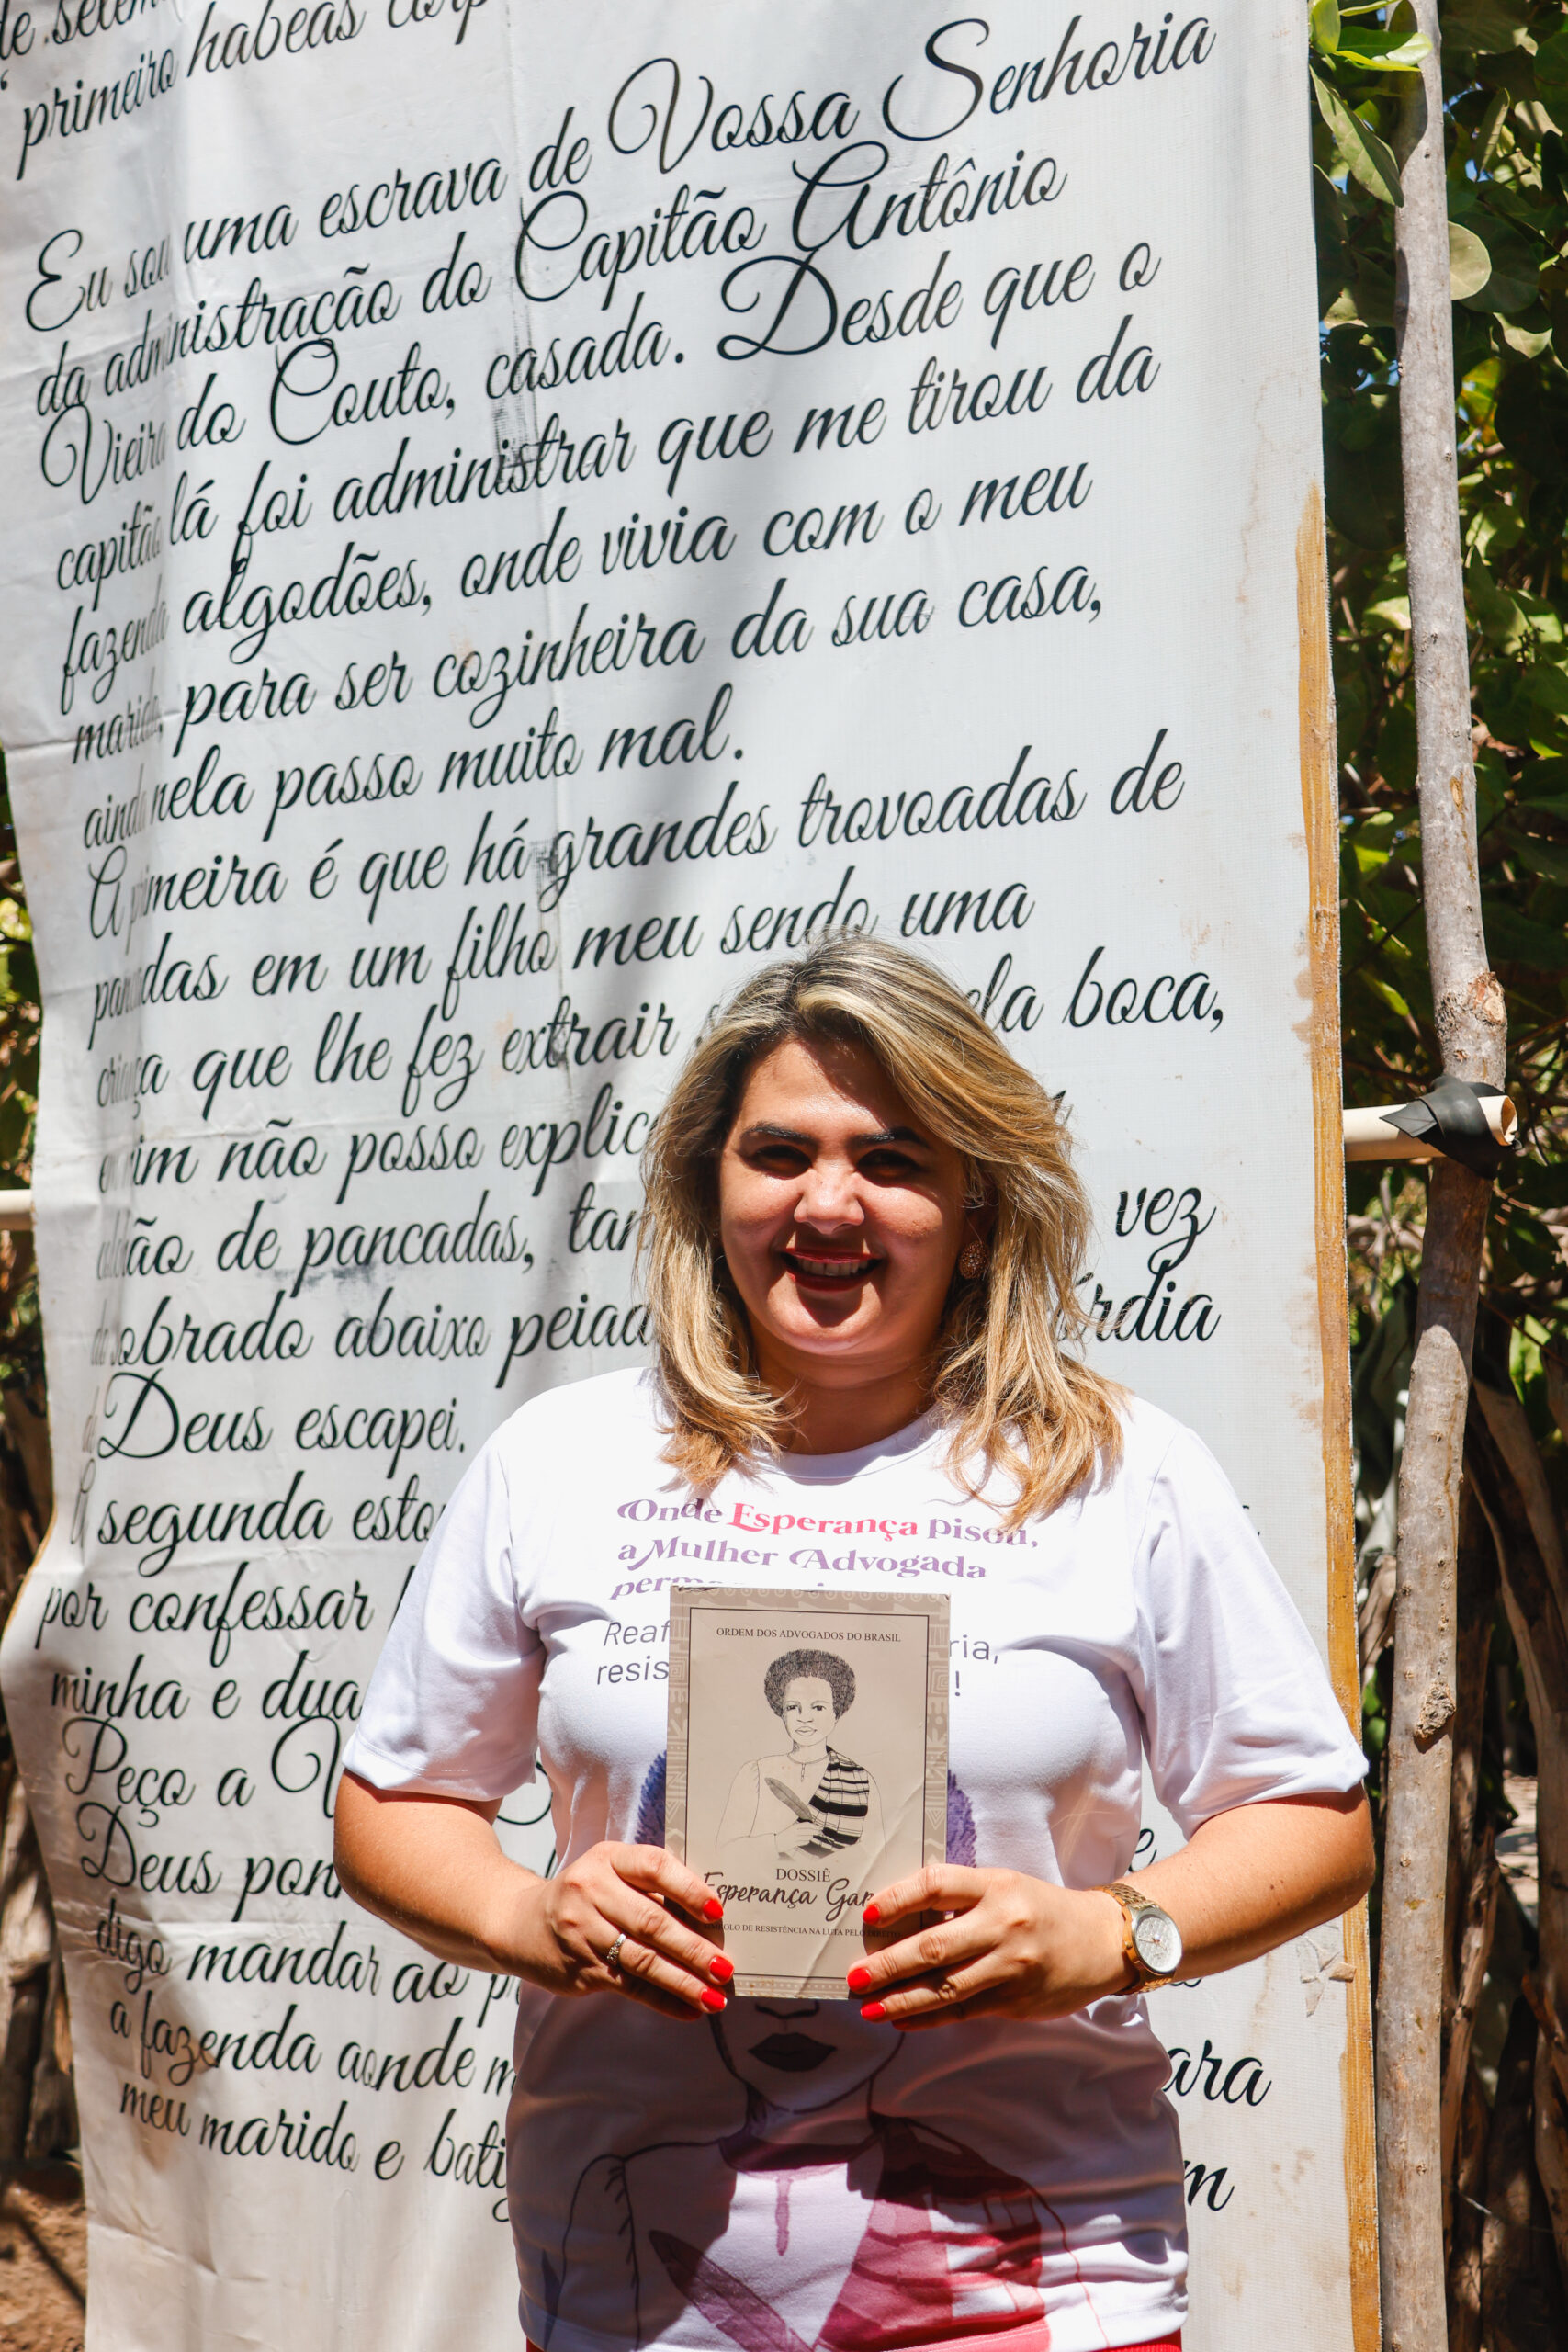 de setem
primeiro habeas corp
Eu sou uma escrava de Vossa Senhoria
da administração do Capitão Antônio
Vieira do Couto, casada. Desde que o
capitão lá foi administrar que me tirou da
fazenda algodões, onde vivia com o meu
marido, para ser cozinheira da sua casa,
ainda nela passo muito mal.
A primeira é que há grandes trovoadas de
pancadas em um filho meu sendo uma
criança que lhe fez extrair ela boca,
em mim não posso explic
colchão de pancadas, tan vez
do sobrado abaixo peiad órdia
de Deus escapei.
A segunda esto
por confessar
minha e dua
Peço a V
Deus pon e
digo mandar ao p
a fazenda aonde m ara
meu marido e bati m
Onde Esperança pisou,
a Mulher Advogada
perm
Reaf ria,
resis !
ORDEM DOS ADVOGADOS DO BRASIL
DOSSIÊ
Esperança Gar
OLO DE RESISTÊNCIA NA LUTA PEL